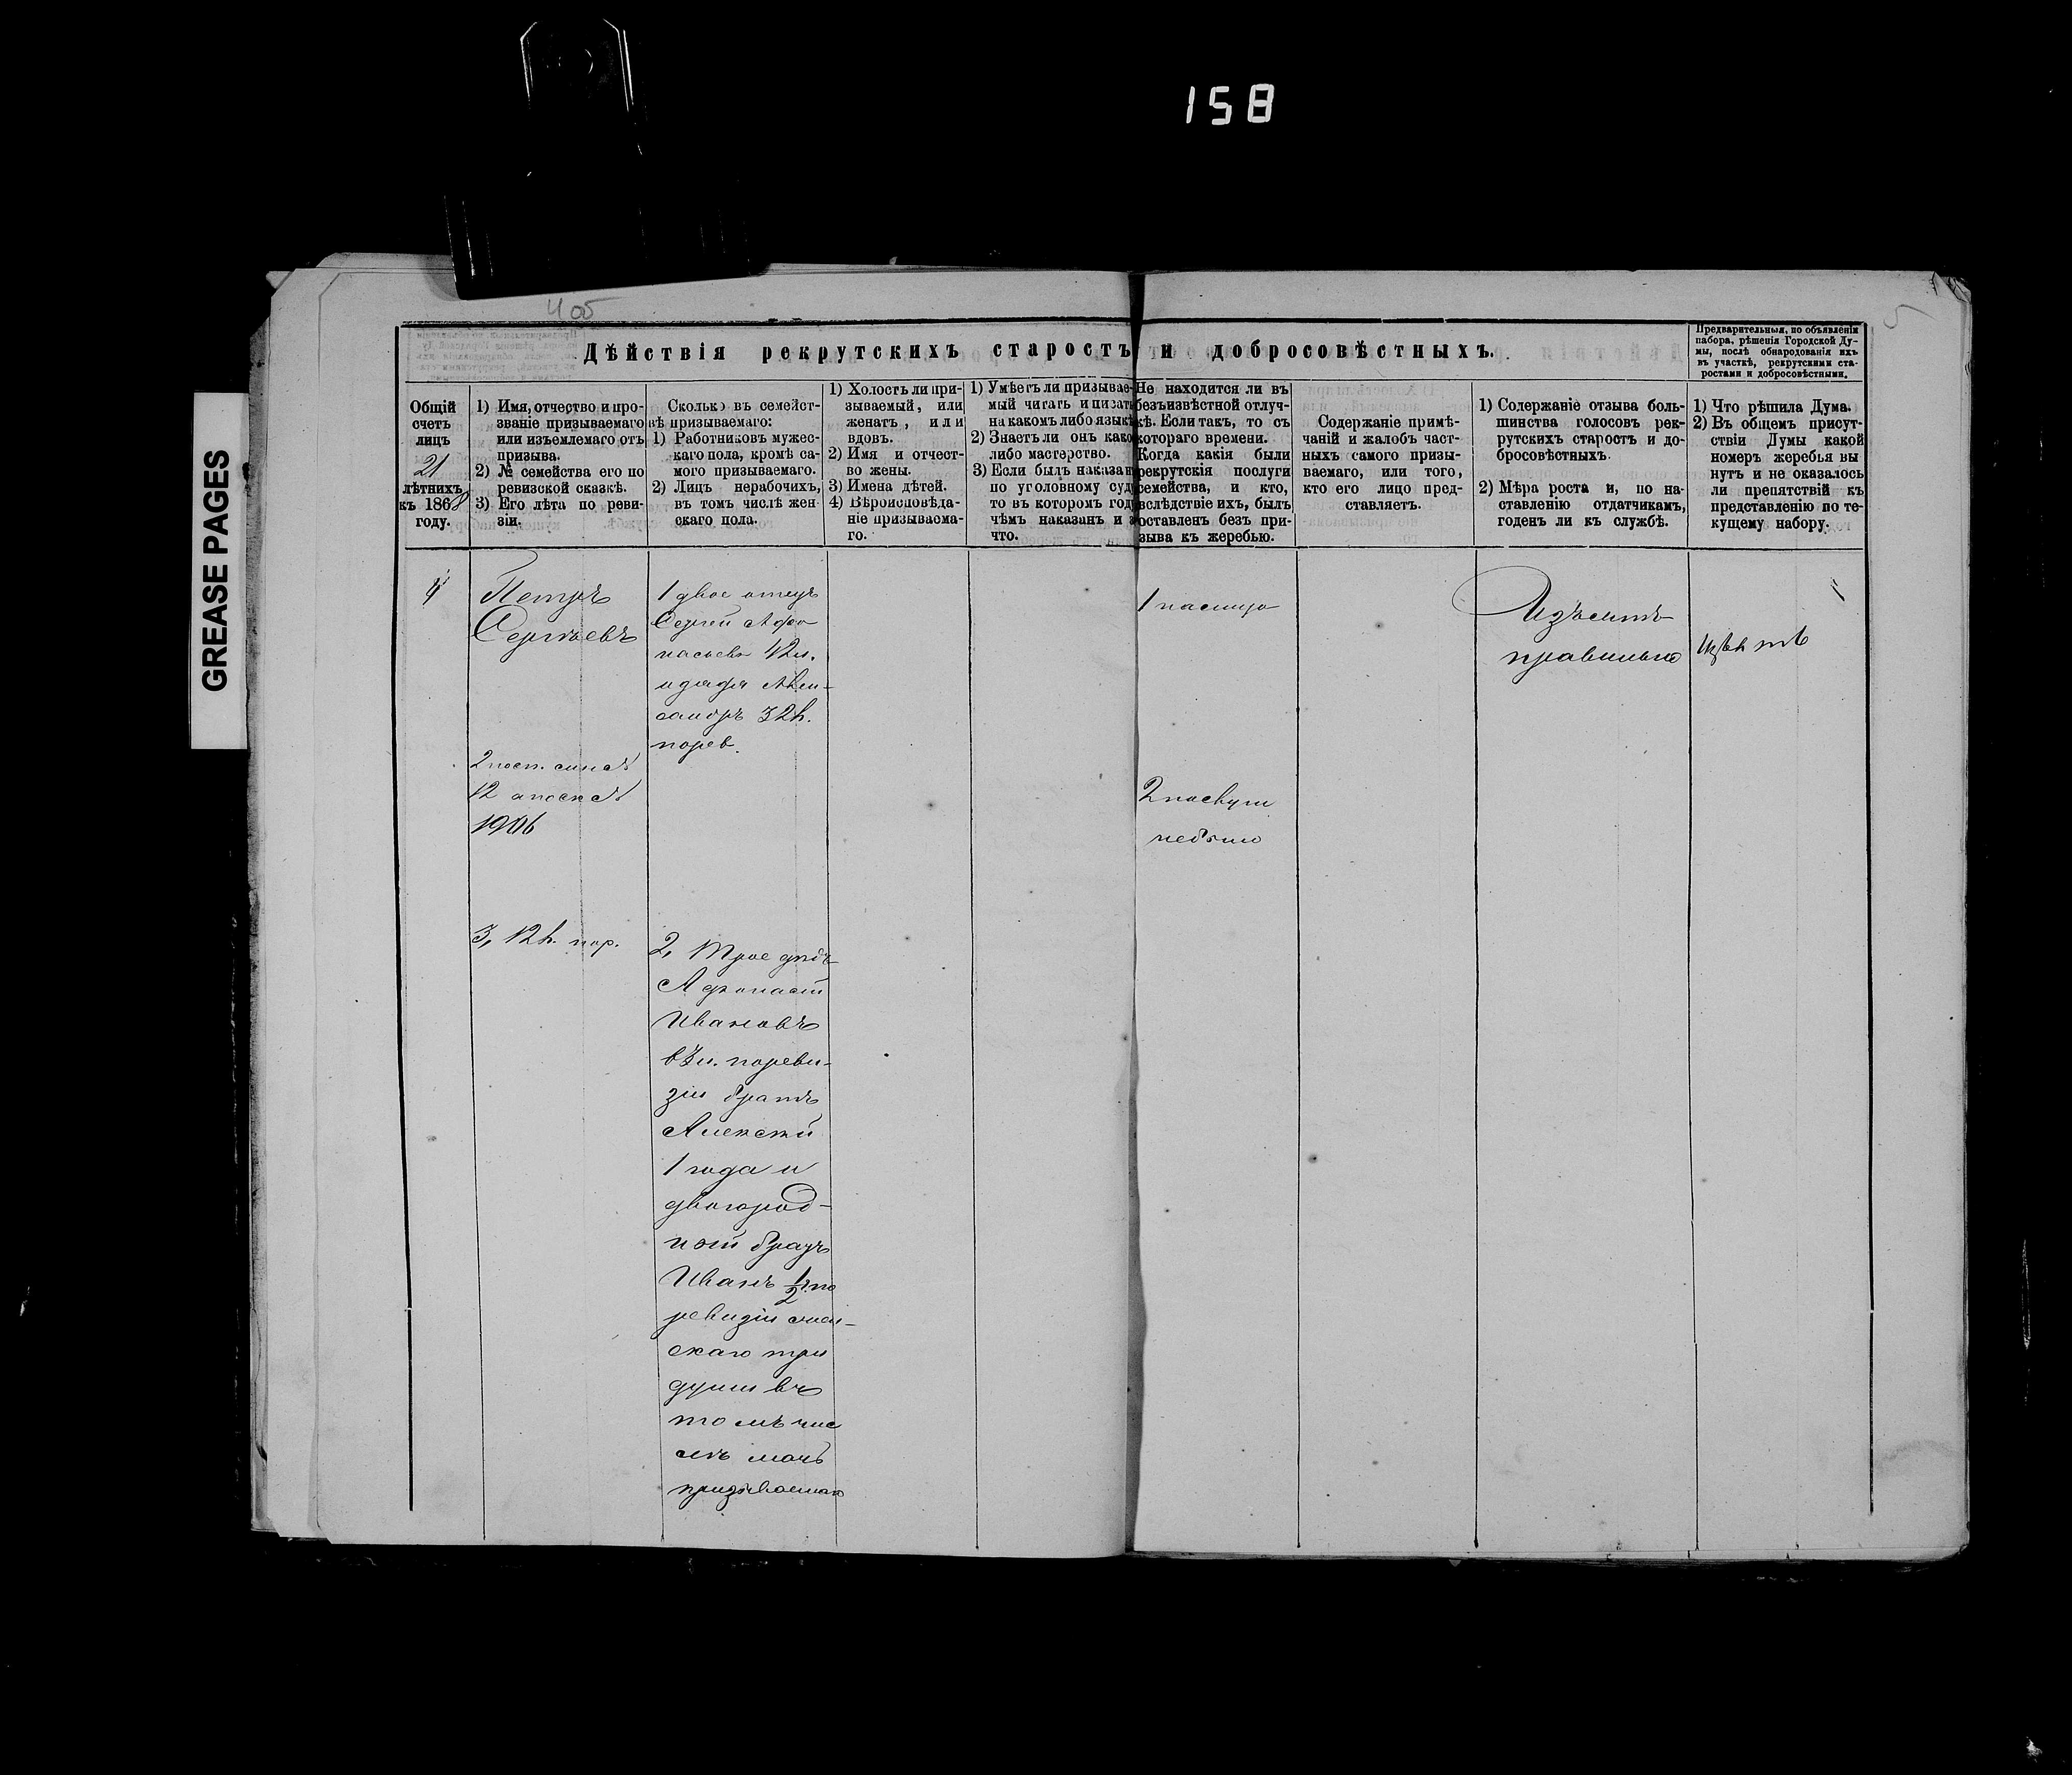 158
GREASE PAGES
405
5
Дѣйствія рекрутскихъ старостъ и добросовѣстныхъ.
Предварительныя, по объявленіи
набора, рѣшенія Городской Ду-
мы, послѣ обнародованія ихъ
въ участкѣ, рекрутскими ста-
ростами и добросовѣстными.
Общій
счетъ
лицъ
21
лѣтнихъ
къ 1868
году.
1) Имя, отчество и про-
званіе призываемаго
или изъемлемаго отъ
призыва.
2) № семейства его по
ревизской сказкѣ.
3) Его лѣта по реви-
зіи.
Сколько въ семейст-
вѣ призываемаго:
1) Работниковъ мужес-
каго пола, кромѣ са-
мого призываемаго.
2) Лицъ нерабочихъ,
въ томъ числѣ жен-
скаго пола.
1) Холостъ ли при-
зываемый, или
женатъ, или
вдовъ.
2) Имя и отчест-
во жены.
3) Имена дѣтей.
4) Вѣроисповѣда-
ніе призываема-
го.
1) Умѣетъ ли призывае-
мый читать и писать
на какомъ либо языкѣ
2) Знаетъ ли онъ како
либо мастерство.
3) Если былъ наказан
по уголовному суд
то въ которомъ год
чѣмъ наказанъ и з
что.
Не находится ли въ
безъизвѣстной отлуч-
кѣ. Если такъ, то съ
котораго времени.
Когда какія были
рекрутскія послуги
семейства, и кто,
вслѣдствіе ихъ, былъ
оставленъ безъ при-
зыва къ жеребью.
Содержаніе примѣ-
чаній и жалобъ част-
ныхъ самого призы-
ваемаго, или того,
кто его лицо пред-
ставляетъ.
1) Содержаніе отзыва боль-
шинства голосовъ рек-
рутскихъ старостъ и до-
бросовѣстныхъ.
2) Мѣра роста и, по на-
ставленію отдатчикамъ,
годенъ ли къ службѣ.
1) Что рѣшила Дума.
2) Въ общемъ присут-
ствіи Думы какой
номеръ жеребья вы
нутъ и не оказалось
ли препятствій къ
представленію по те-
кущему набору.
4
Петръ
Сергѣевъ
12
1906
3, 12 л. пор.
1 двое отецъ
Сергій Афо
насьевъ 42 л.
и дядя Алек-
сандръ 32 л.
порев.
2, Трое дядъ
Афонасій
Ивановъ
порев-
зіи братъ
Алексѣй
1 года и
двоюрод-
ной братъ
Иванъ 1/2 г. по
ревизіи жен-
скаго три
души въ
томъ чис
лѣ мать
призываемаго
1 налицо
2 послуги
небыло
Изъять
правильно